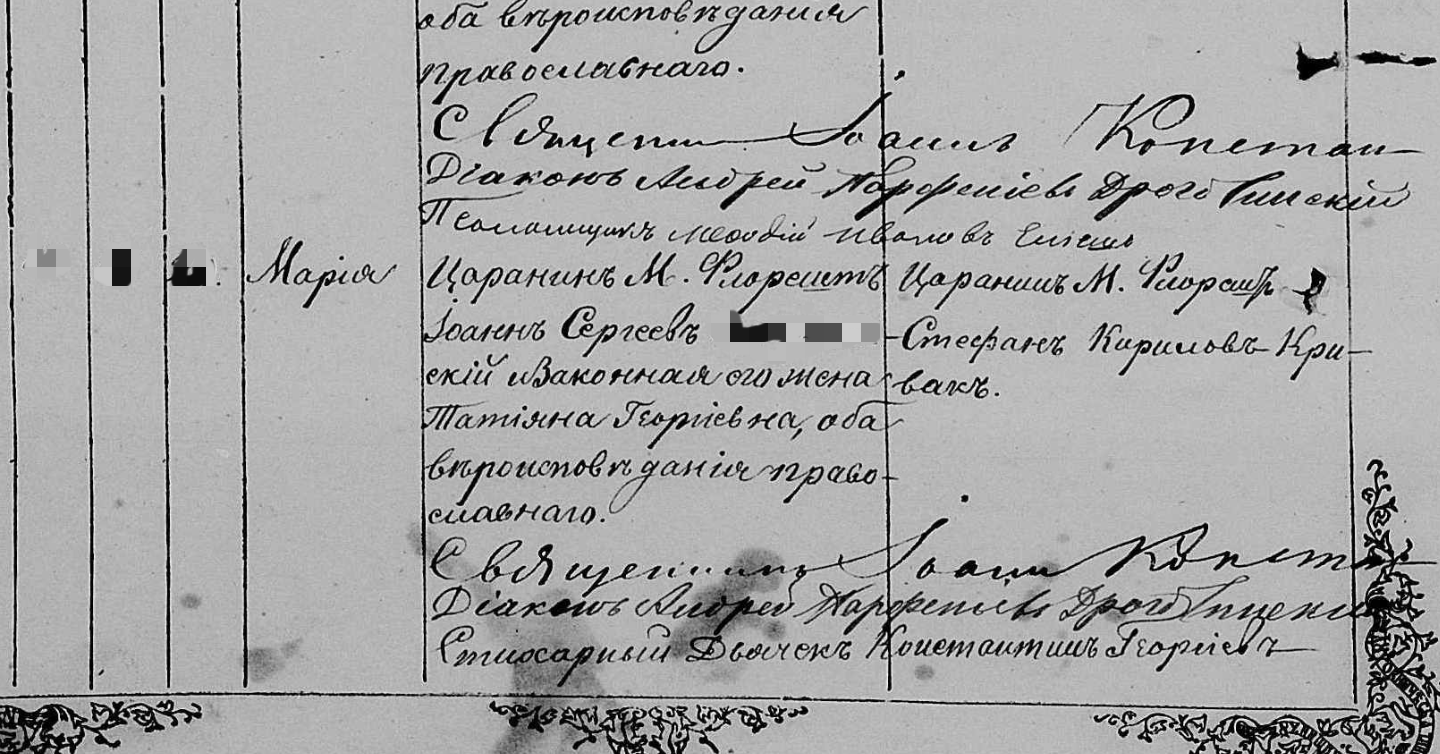 оба вѣроисповѣданія
православнаго.
Священ Іоаннъ Констан
Діаконъ Андрей Парфеніевъ
Псаломщикъ Меѳодій Ивановъ
Марія
Царанинъ М. Флорештъ
Іоаннъ Сергеевъ
скій и Законная его жена
Татіяна Георгіевна, оба
вѣроисповѣданія право-
славнаго.
Царанинъ М. Флорештъ
Стефанъ Кириловъ Кри-
вакъ.
Священникъ Іоаннъ Конст
Діаконъ Андрей Парфеніевъ
Стихарный Дьячекъ Константинъ Георгіевъ